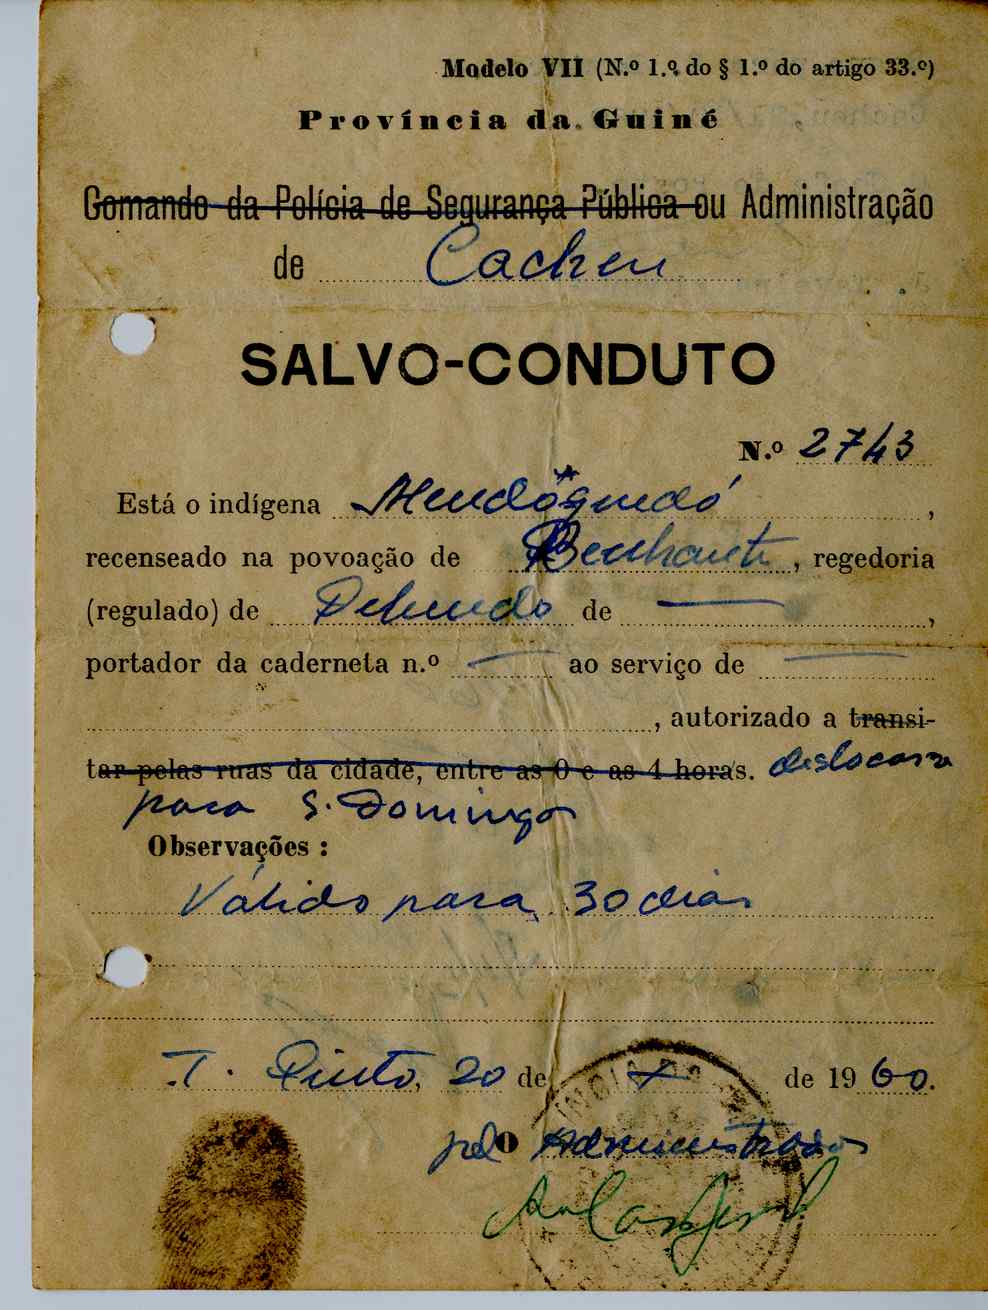 Modelo VII (N.º 1.º do § 1.º do artigo 33.º)
Província da Guiné
Comando da Polícia de Segurança Pública ou Administração
de Cacheu
SALVO-CONDUTO
N.º 2743
Está o indígena ,
recenseado na povoação de , regedoria
(regulado) de de — ,
portador da caderneta n.º — ao serviço de —
, autorizado a transi-
tar pelas ruas da cidade, entre as 0 e as 4 horas. deslocar-se
para S. Domingos
Observações :
Válido para 30 dias
T. Pinto, 20 de X de 1960.
pelo Administrador